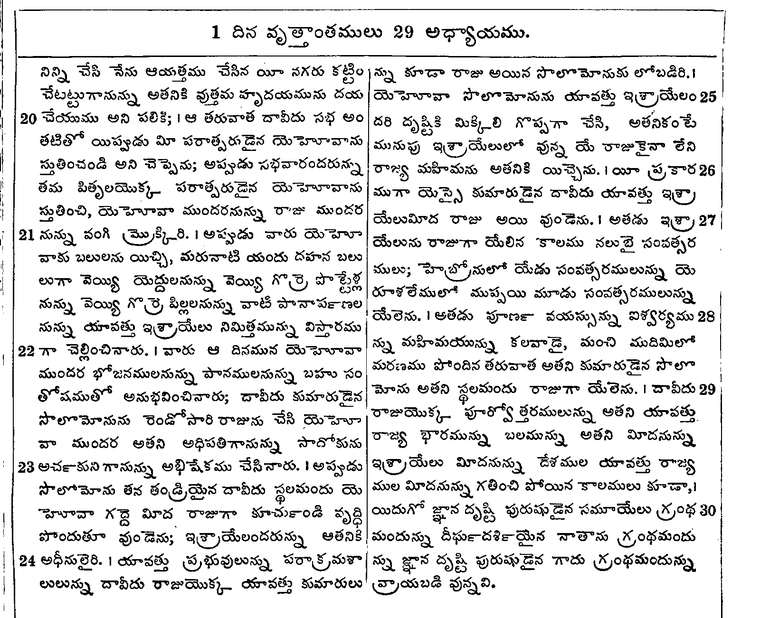 1 దిన వృత్తాంతములు 29 అధ్యాయము.
నిన్ని చేసి నేను ఆయత్తము చేసిన యీ నగరు కట్టిం
చేటట్టుగానున్ను అతనికి వుత్తమ హృదయమును దయ
20 చేయుము అని పలికి; । ఆ తరువాత దావీదు సభ అం
తటితో యిప్పుడు మీ పరాత్పరుడైన యెహోవాను
స్తుతించండి అని చెప్పెను; అప్పుడు సభవారందరున్ను
తమ పితృలయొక్క పరాత్పరుడైన యెహోవాను
స్తుతించి, యెహోవా ముందరనున్ను రాజు ముందర
21 నున్ను వంగి మ్రొక్కిరి. । అప్పుడు వారు యెహో
వాకు బలులను యిచ్చి, మరునాటి యందు దహన బలు
లుగా వెయ్యి యెద్దులనున్ను వెయ్యి గొర్రె పొట్టేళ్ల
నున్ను వెయ్యి గొర్రె పిల్లలనున్ను వాటి పానార్పణల
నున్ను యావత్తు ఇశ్రాయేలు నిమిత్తమున్ను విస్తారము
22 గా చెల్లించినారు. । వారు ఆ దినమున యెహోవా
ముందర భోజనములనున్ను పానములనున్ను బహు సం
తోషముతో అనుభవించినారు; దావీదు కుమారుడైన
సొలొమోనును రెండోసారి రాజును చేసి యెహో
వా ముందర అతని అధిపతిగానున్ను సాదోకును
23 అర్చకునిగానున్ను అభిషేకము చేసినారు. । అప్పుడు
సొలొమోను తన తండ్రియైన దావీదు స్థలమందు యె
హోవా గద్దె మీద రాజుగా కూచుకుండి వృద్ధి
పొందుతూ వుండెను; ఇశ్రాయేలందరున్ను అతనికి
24 అధీనులైరి. । యావత్తు ప్రభువులున్ను పరాక్రమశా
లులున్ను దావీదు రాజుయొక్క యావత్తు కుమారులు
న్ను కూడా రాజు అయిన సొలొమోనుకు లోబడిరి. ।
యెహోవా సొలొమోనును యావత్తు ఇశ్రాయేలం 25
దరి దృష్టికి మిక్కిలి గొప్పగా చేసి, అతనికంటే
మునుపు ఇశ్రాయేలులో వున్న యే రాజుకైనా లేని
రాజ్య మహిమను అతనికి యిచ్చెను. । యీ ప్రకార 26
ముగా యెస్సై కుమారుడైన దావీదు యావత్తు ఇశ్రా
యేలుమీద రాజు అయి వుండెను. । అతడు ఇశ్రా 27
యేలును రాజుగా యేలిన కాలము నలుభై సంవత్సర
ములు; హెబ్రోనులో యేడు సంవత్సరములున్ను యె
రూశలేములో ముప్పయి మూడు సంవత్సరములున్ను
యేలెను. । అతడు పూర్ణ వయస్సున్ను ఐశ్వర్యము 28
న్ను మహిమయున్ను కలవాడై, మంచి ముదిమిలో
మరణము పొందిన తరువాత అతని కుమారుడైన సొలొ
మోను అతని స్థలమందు రాజుగా యేలెను. । దావీదు 29
రాజుయొక్క పూర్వోత్తరములున్ను అతని యావత్తు
రాజ్య భారమున్ను బలమున్ను అతని మీదనున్ను
ఇశ్రాయేలు మీదనున్ను దేశముల యావత్తు రాజ్య
ముల మీదనున్ను గతించి పోయిన కాలములు కూడా, ।
యిదుగో జ్ఞాన దృష్టి పురుషుడైన సమూయేలు గ్రంథ 30
మందున్ను దీర్ఘదర్శియైన నాతాను గ్రంథమందు
న్ను జ్ఞాన దృష్టి పురుషుడైన గాదు గ్రంథమందున్ను
వ్రాయబడి వున్నవి.